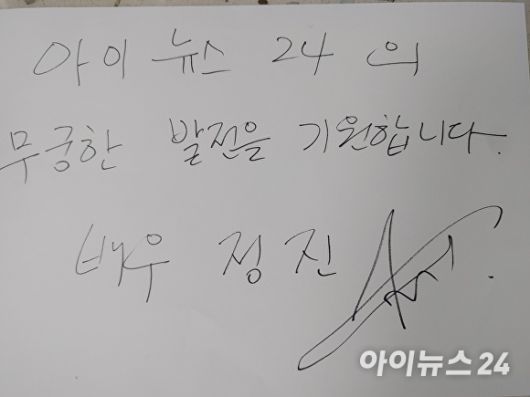 아이 뉴스 24 의
무궁한 발전을 기원합니다.
배우 정진
아이뉴스24